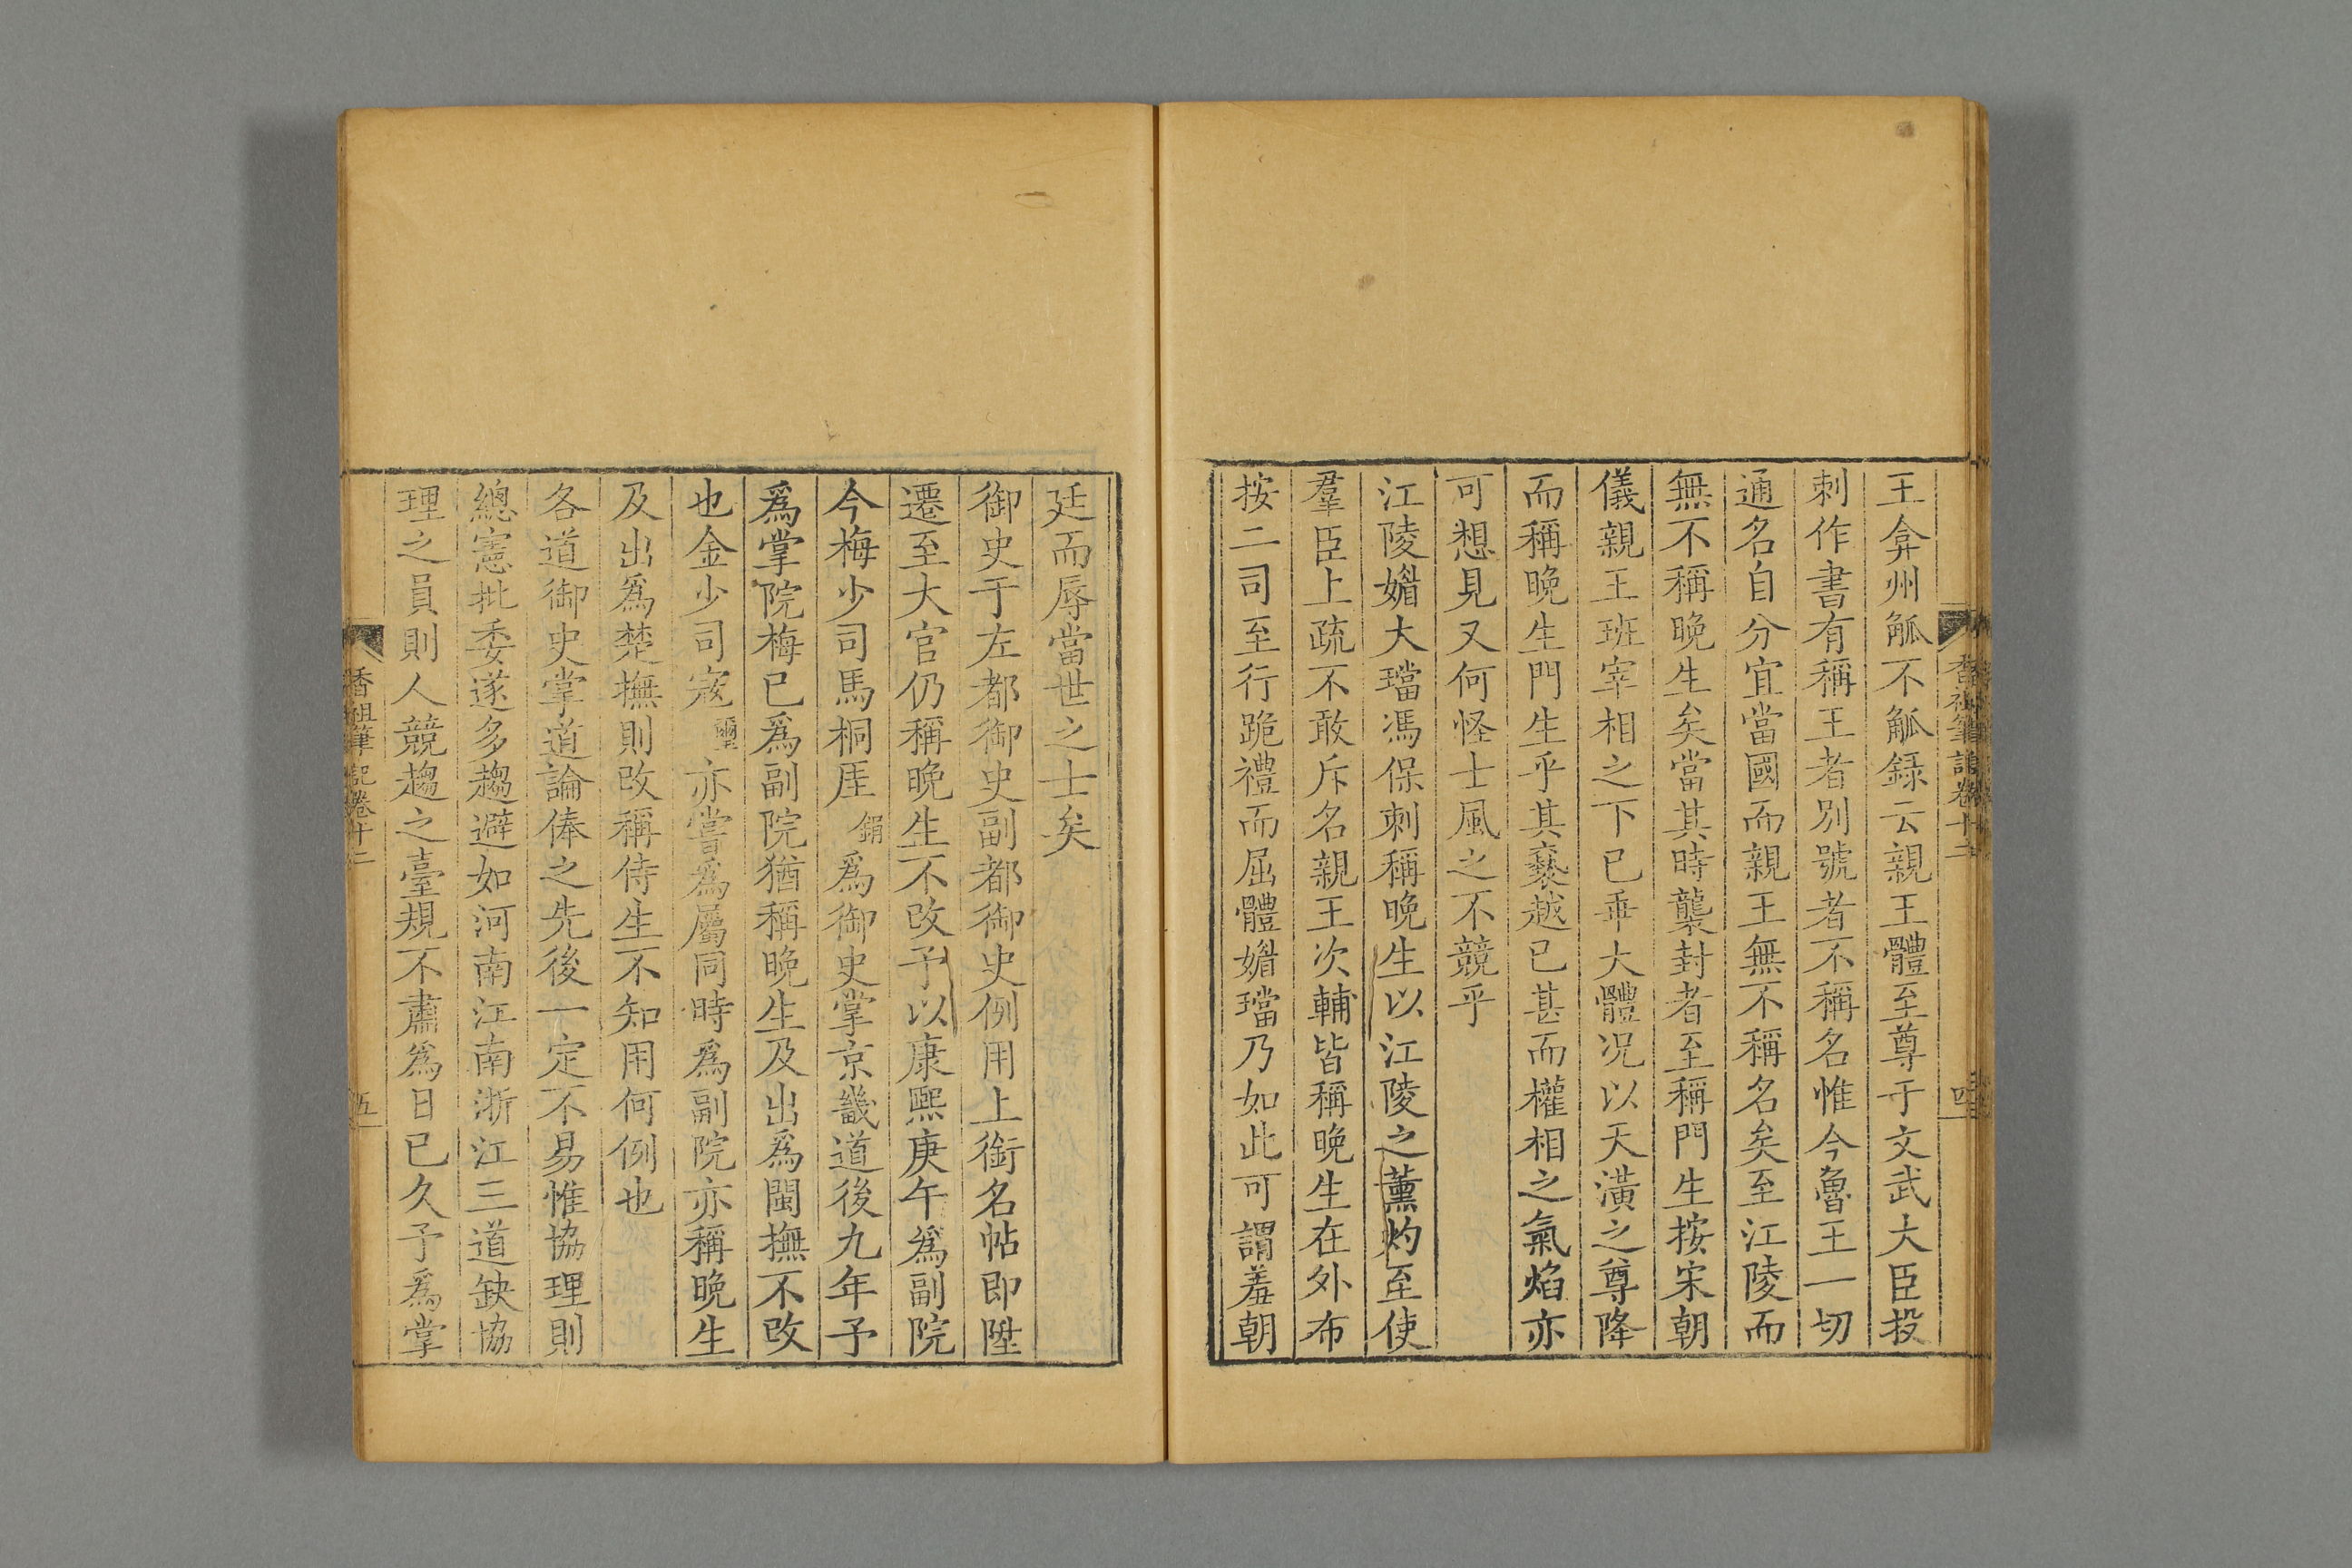 王弇州觚不觚録云親王體至尊于文武大臣投
刺作書有稱王者別號者不稱名惟今魯王一切
通名自分宜當國而親王無不稱名矣至江陵而
無不稱晚生矣當其時襲封者至稱門生按宋朝
儀親王班宰相之下已乖大體况以天潢之尊降
而稱晚生門生乎其褻越已甚而權相之氣焰亦
可想見又何怪士風之不競乎
江陵媚大璫馮保刺稱晚生以江陵之薰灼至使
羣臣上疏不敢斥名親王次輔皆稱晚生在外布
按二司至行跪禮而屈體媚璫乃如此可謂羞朝
廷而辱當世之士矣
御史于左都御史副都御史例用上銜名帖即陞
遷至大官仍稱晚生不改予以康熙庚午為副院
今梅少司馬桐厓鋗為御史掌京畿道後九年予
為掌院梅已為副院猶稱晚生及出為閩撫不改
也金少司寇璽亦嘗為屬同時為副院亦稱晚生
及出為楚撫則改稱侍生不知用何例也
各道御史掌道論俸之先後一定不易惟協理則
總憲批委遂多趨避如河南江南浙江三道缺協
理之員則人競趨之臺規不肅為日已久予為掌
香祖筆記卷十二
四
香祖筆記卷十二
五